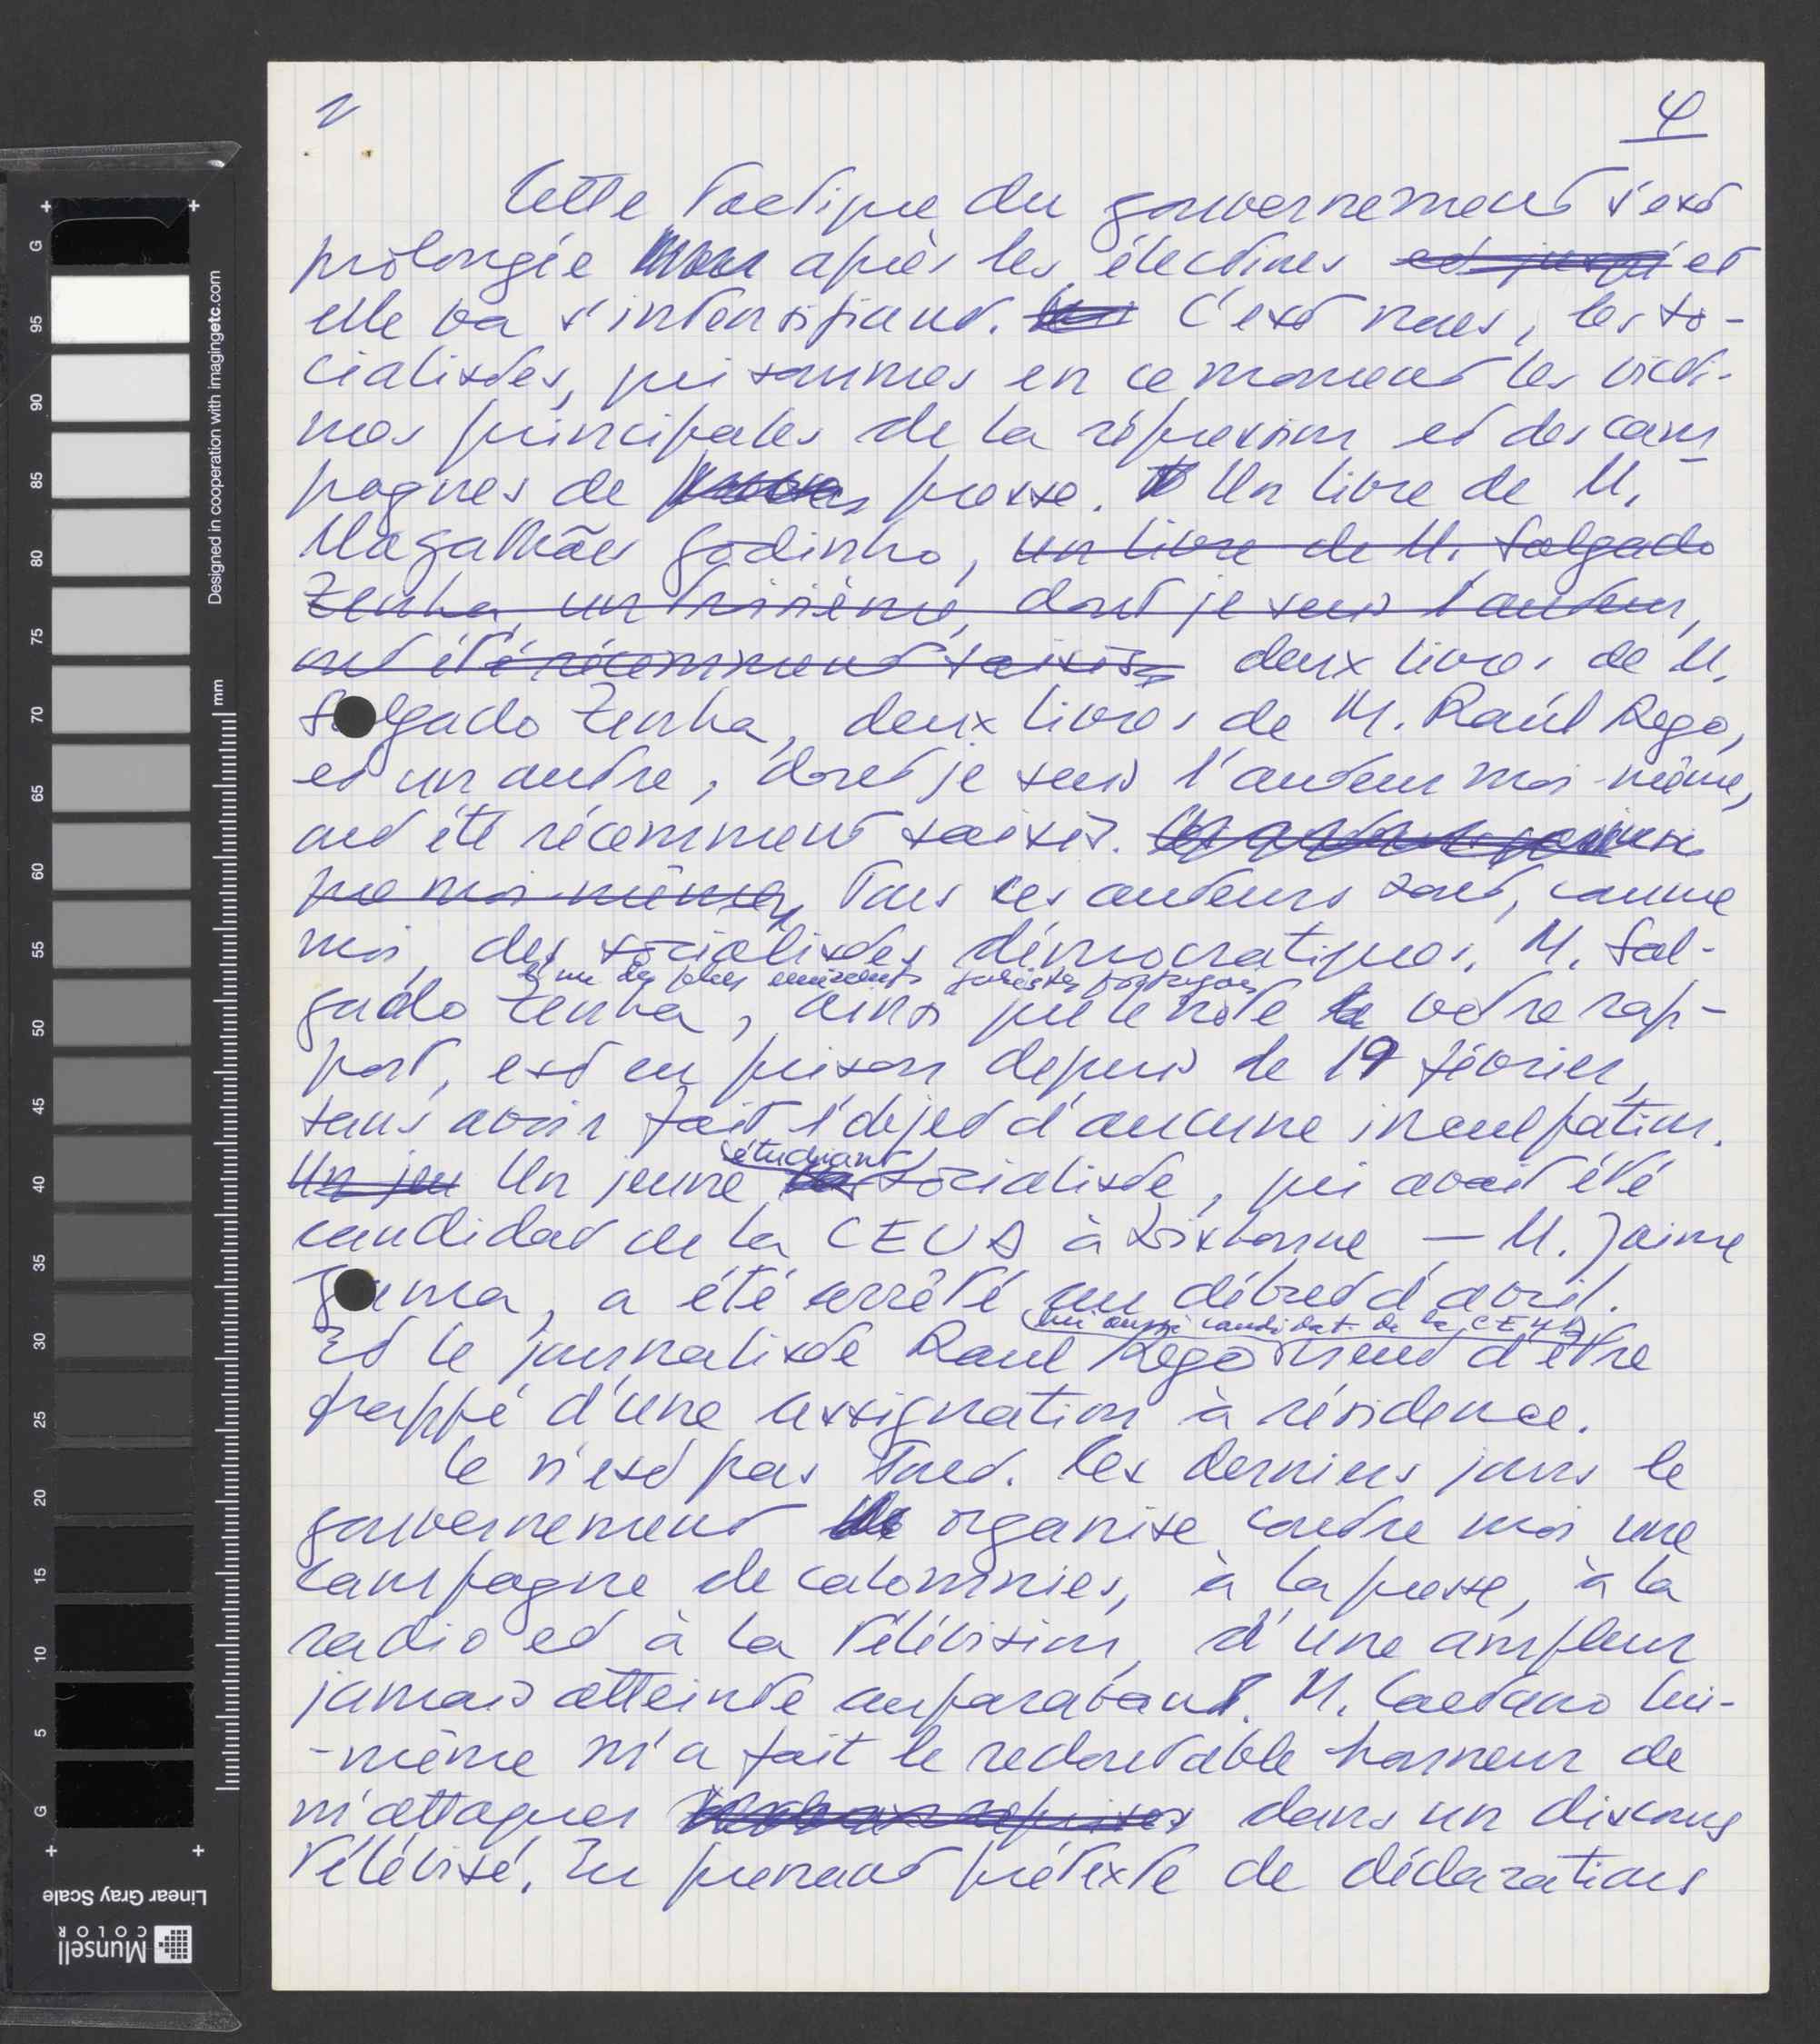 4
Cette tactique du gouvernement s'est
prolongée après les élections et jusqu' et
elle va s'intensifiant. C'est nous, les so-
cialistes, qui sommes en ce moment les victi-
mes principales de la répression et des cam
pagnes de presse. Un livre de M.
Magalhães Godinho, un livre de M. Salgado
Zenha, un troisième, dont je suis l'auteur,
ont été récemment saisis, deux livres de M.
Salgado Zenha, deux livres de M. Raúl Rego,
et un autre, dont je suis l'auteur moi-même,
ont été récemment saisis.
que moi-même, Tous ces auteurs sont, comme
moi, des socialistes démocratiques. M. Sal-
et un des plus éminents juristes portugais
gado Zenha, ainsi que le note votre rap-
port, est en prison depuis le 19 février,
sans avoir fait l'objet d'aucune inculpation.
étudiant
Un jeu Un jeune socialiste, qui avait été
candidat de la CEUD à Lisbonne — M. Jaime
Gama, a été arrêté au début d'avril.
lui aussi candidat de la CEUD
Et le journaliste Raul Rego vient d'être
frappé d'une assignation à résidence.
Ce n'est pas tout. Ces derniers jours le
gouvernement organise contre moi une
campagne de calomnies, à la presse, à la
radio et à la télévision, d'une ampleur
jamais atteinte auparavant. M. Caetano lui-
-même m'a fait le redoutable honneur de
m'attaquer dans un discours
télévisé. En prenant prétexte de déclarations
G
95
90
85
80
75
70
65
60
55
50
45
40
35
30
25
20
15
10
5
G
mm
Designed in cooperation with imagingetc.com
Linear Gray Scale
Munsell
COLOR